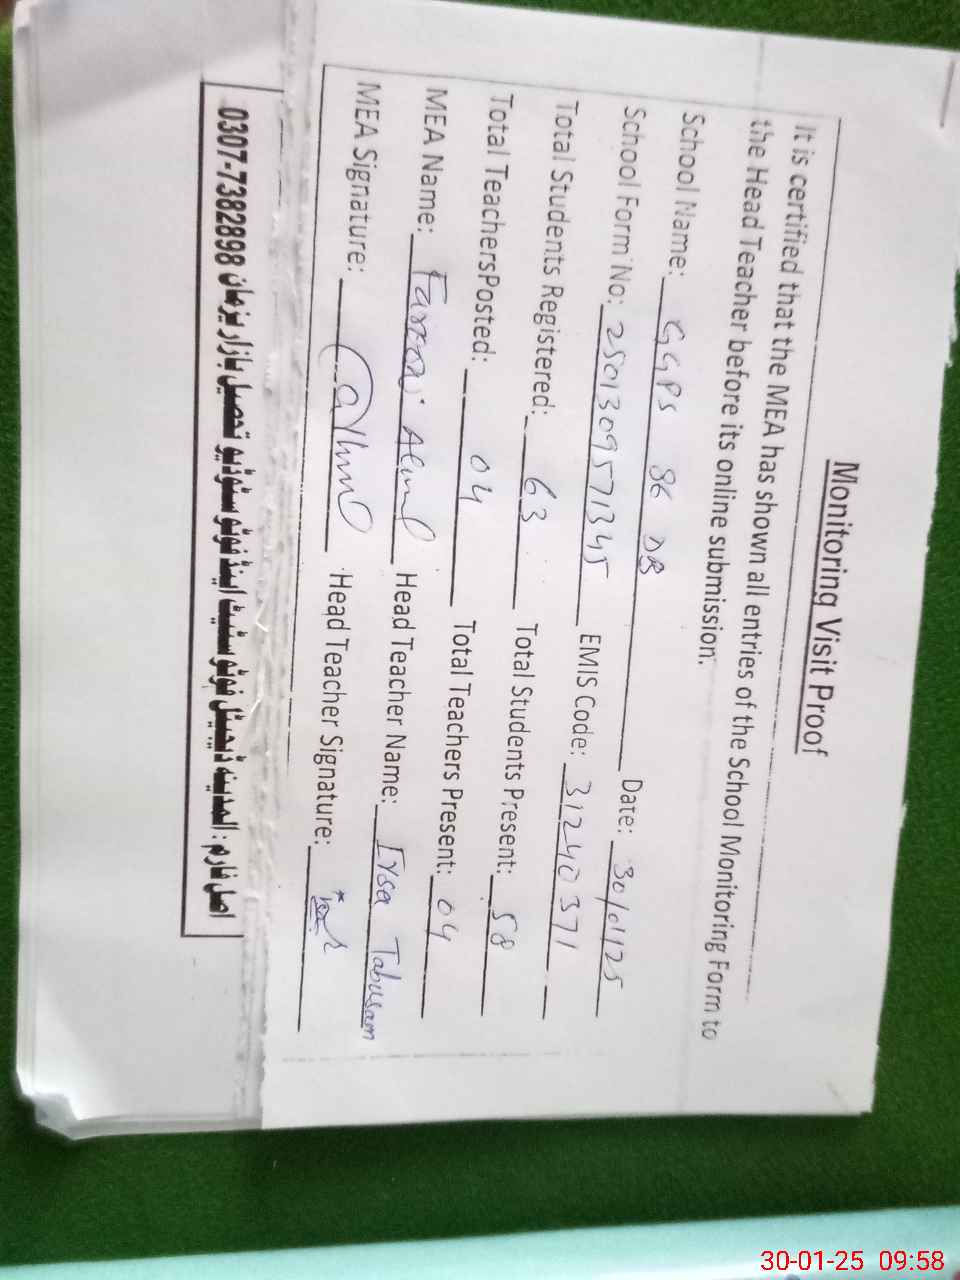 Monitoring Visit Proof
It is certified that the MEA has shown all entries of the School Monitoring Form to
the Head Teacher before its online submission.
School Name: GGPS 86 DB Date: 30/01/25
School Form No: 2501309571345 EMIS Code: 31240371
Total Students Registered: 63 Total Students Present: 58
Total TeachersPosted: 04 Total Teachers Present: 04
MEA Name: Head Teacher Name: Irsa Tabusam
MEA Signature: Head Teacher Signature:
اصل فارم: المدینہ ڈیجیٹل فوٹو سٹیٹ اینڈ فوٹو سٹوڈیو تحصیل بازار یزمان 0307-7382898
30-01-25 09:58